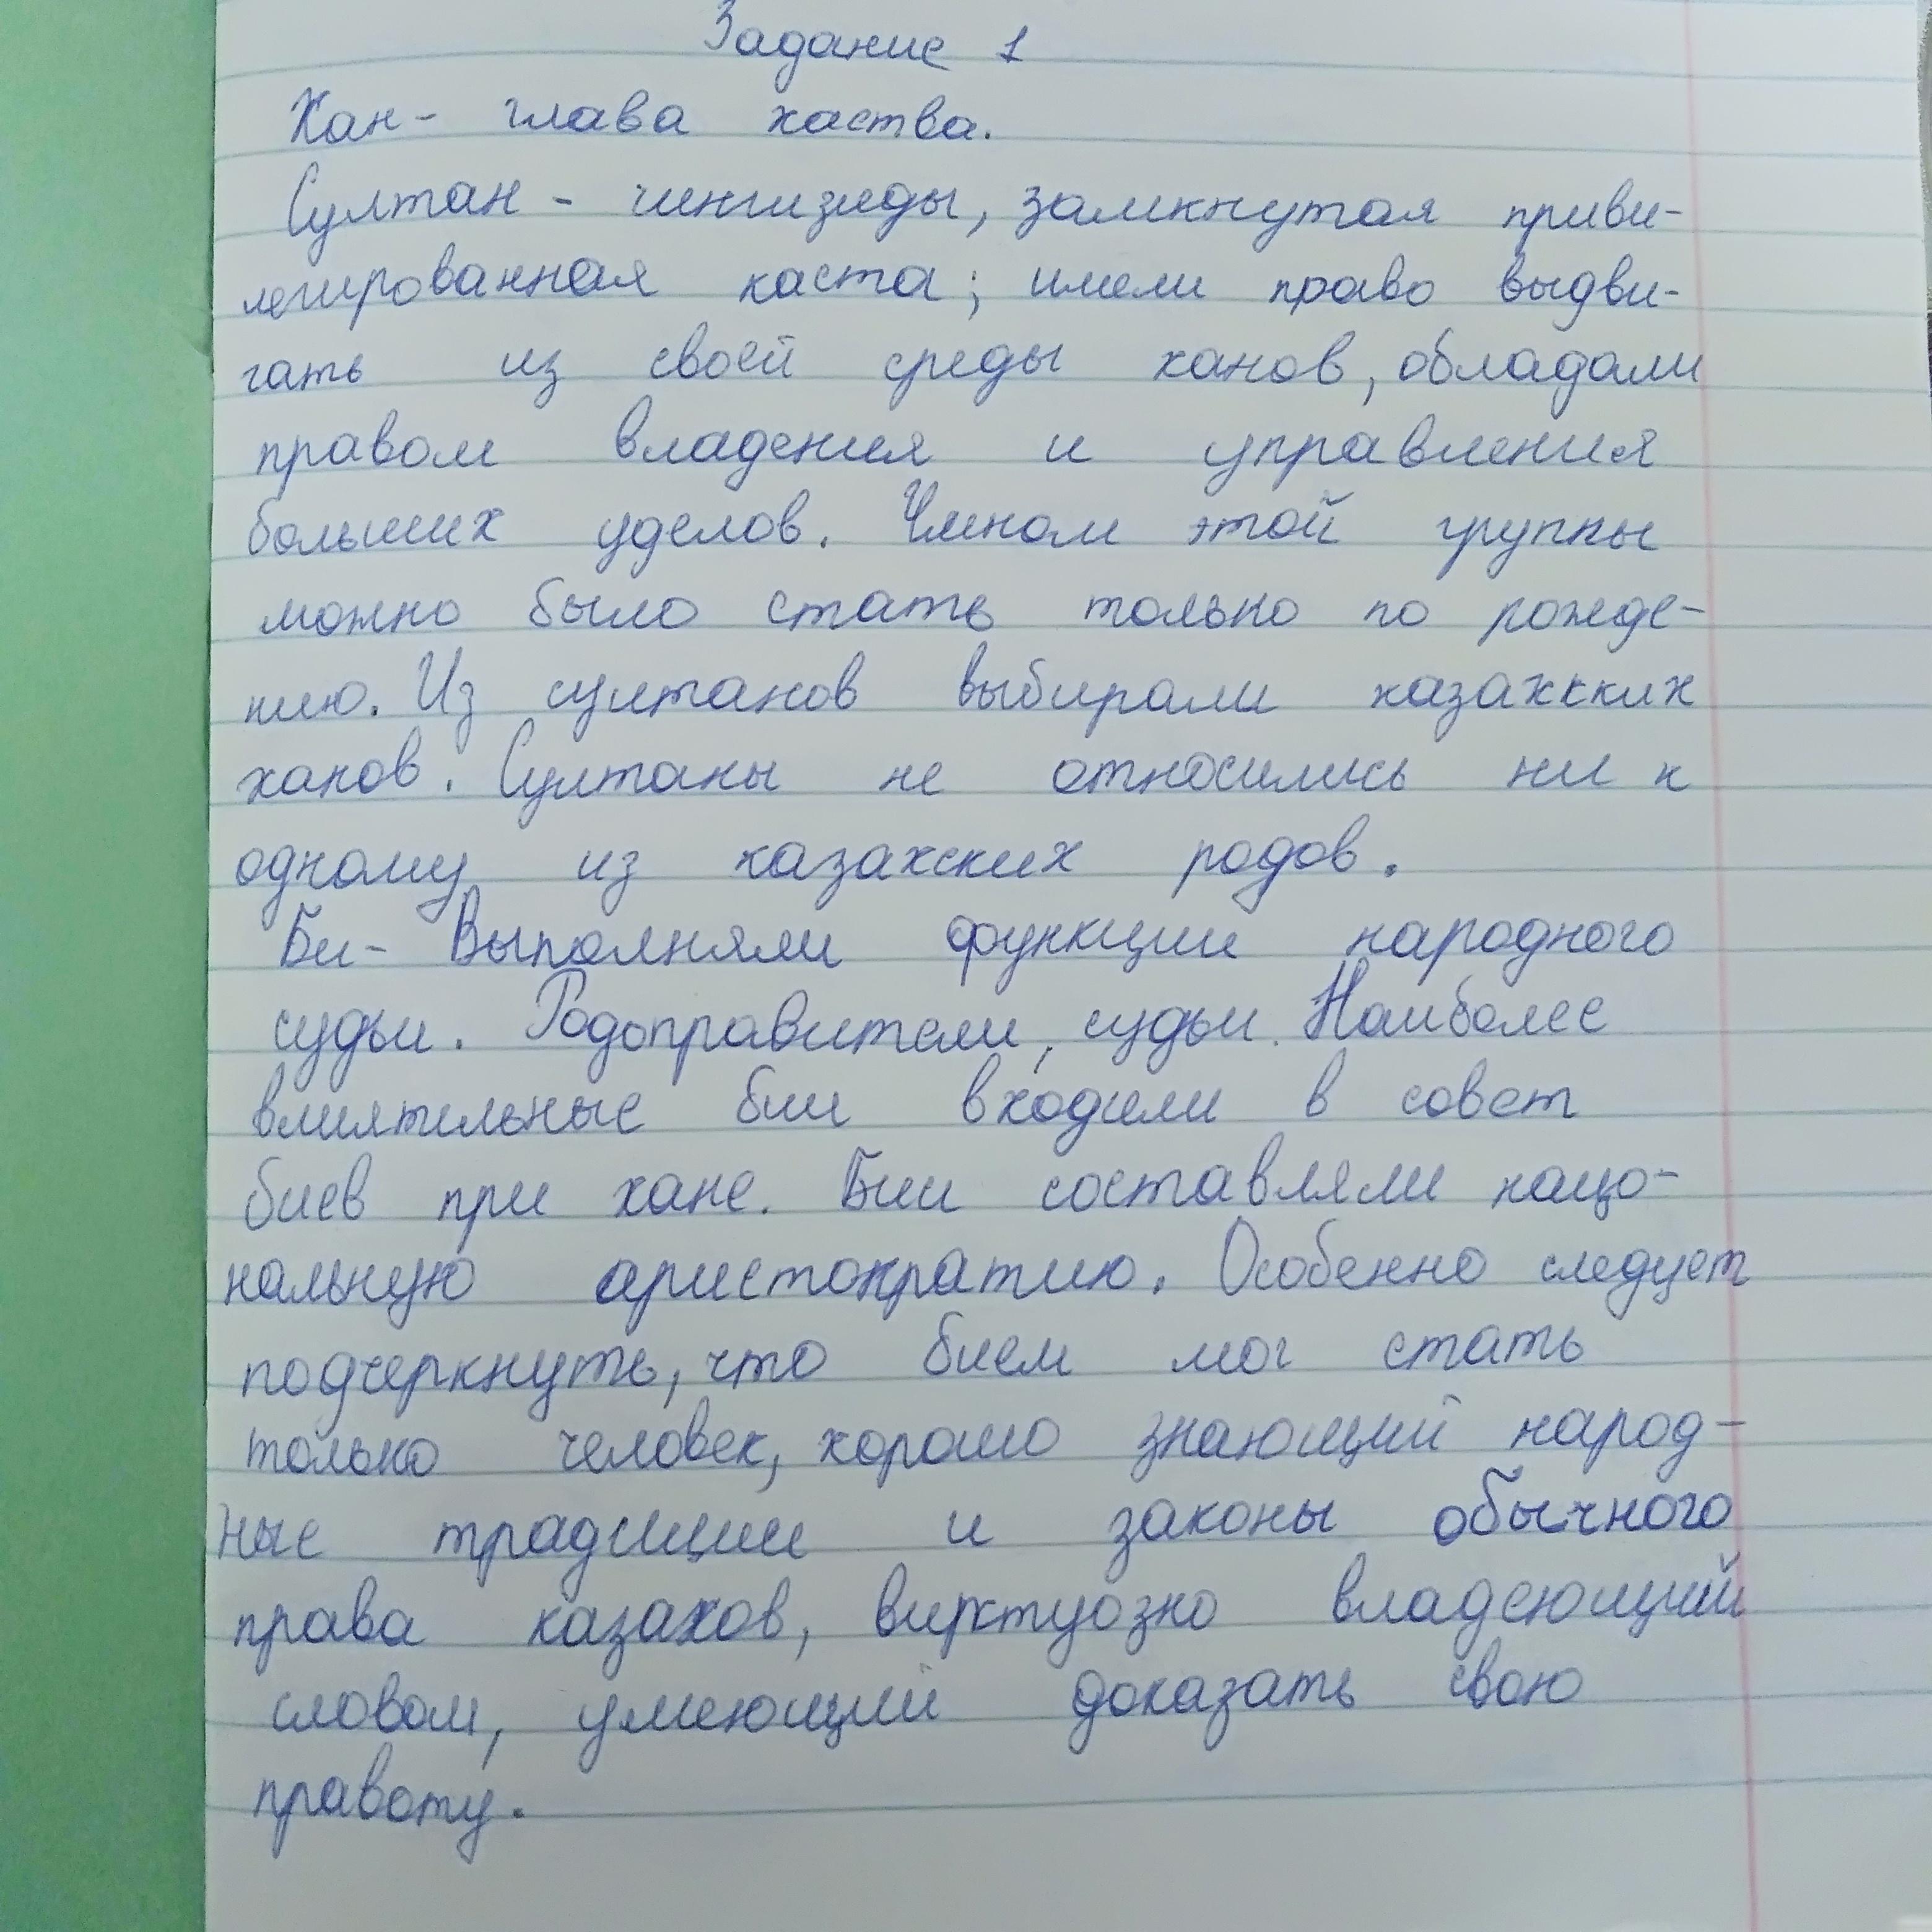 Задание 1
Хан - глава хаства.
Султан - чингизиды, замкнутая приви-
легированная каста; имели право выдви-
гать из своей среды ханов, обладали
правом владения и управления
больших уделов. Членом этой группы
можно было стать только по рожде-
нию. Из султанов выбирали казахкких
ханов. Султаны не относились ни к
одному из казахских родов.
Би - Выполняли функции народного
судьи. Родоправители, судьи. Наиболее
влиятильные бии входили в совет
биев при хане. Бии составляли нацо-
нальную аристократию. Особенно следует
подчеркнуть, что бием мог стать
только человек, хорошо знающий народ-
ные традиции и законы обычного
права казахов, вирктуозно владеющий
словом, умеющий доказать свою
правоту.